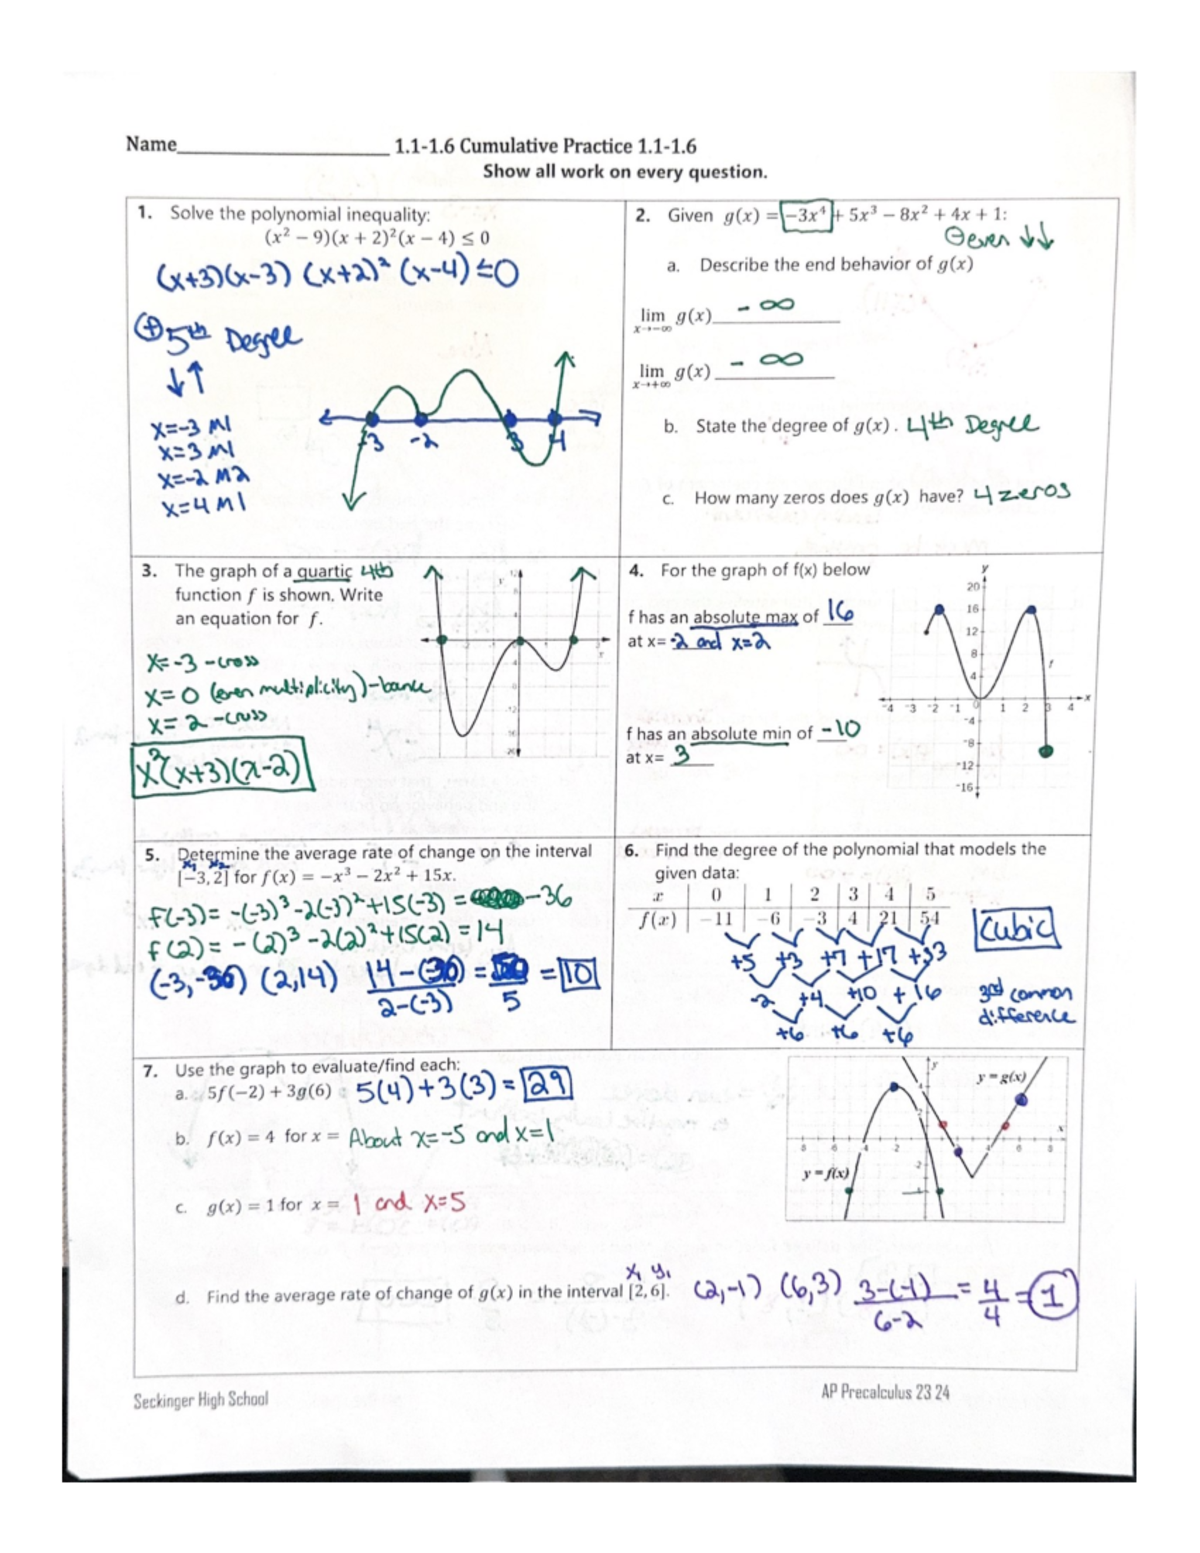 Name____________________ 1.1-1.6 Cumulative Practice 1.1-1.6
Show all work on every question.
1. Solve the polynomial inequality:
(x² − 9)(x + 2)²(x − 4) ≤ 0
(x+3)(x-3) (x+2)² (x-4) ≤0
⊕ 5th Degree
↓↑
x=-3 M1
x=3 M1
x=-2 M2
x=4 M1
-3 -2 3 4
2. Given g(x) = −3x⁴ + 5x³ − 8x² + 4x + 1:
⊖ even ↓↓
a. Describe the end behavior of g(x)
lim g(x) - ∞
x→−∞
lim g(x) - ∞
x→+∞
b. State the degree of g(x). 4th Degree
c. How many zeros does g(x) have? 4 zeros
3. The graph of a quartic 4th
function f is shown. Write
an equation for f.
x=-3 -cross
x=0 (even multiplicity)-bounce
x=2 -cross
x²(x+3)(x-2)
4. For the graph of f(x) below
f has an absolute max of 16
at x= -2 and x=2
f has an absolute min of -10
at x= 3
y
20
16
12
8
4
-4 -3 -2 -1 0 1 2 3 4 x
-4
-8
-12
-16
f
5. Determine the average rate of change on the interval
x₁ x₂
[−3, 2] for f(x) = −x³ − 2x² + 15x.
f(-3)= -(-3)³-2(-3)²+15(-3) = -36
f(2) = -(2)³-2(2)²+15(2) = 14
(-3,-36) (2,14) 14-(-36) = 50 = 10
2-(-3) 5
6. Find the degree of the polynomial that models the
given data:
x 0 1 2 3 4 5
f(x) −11 −6 −3 4 21 54
+5 +3 +7 +17 +33
-2 +4 +10 +16
+6 +6 +6
Cubic
3rd common
difference
7. Use the graph to evaluate/find each:
a. 5f(−2) + 3g(6) = 5(4)+3(3) = 29
b. f(x) = 4 for x = About x=-5 and x=1
c. g(x) = 1 for x = 1 and x=5
y = g(x)
y = f(x)
x₁ y₁
d. Find the average rate of change of g(x) in the interval [2, 6]. (2,-1) (6,3) 3-(-1) = 4 = 1
6-2 4
Seckinger High School
AP Precalculus 23 24